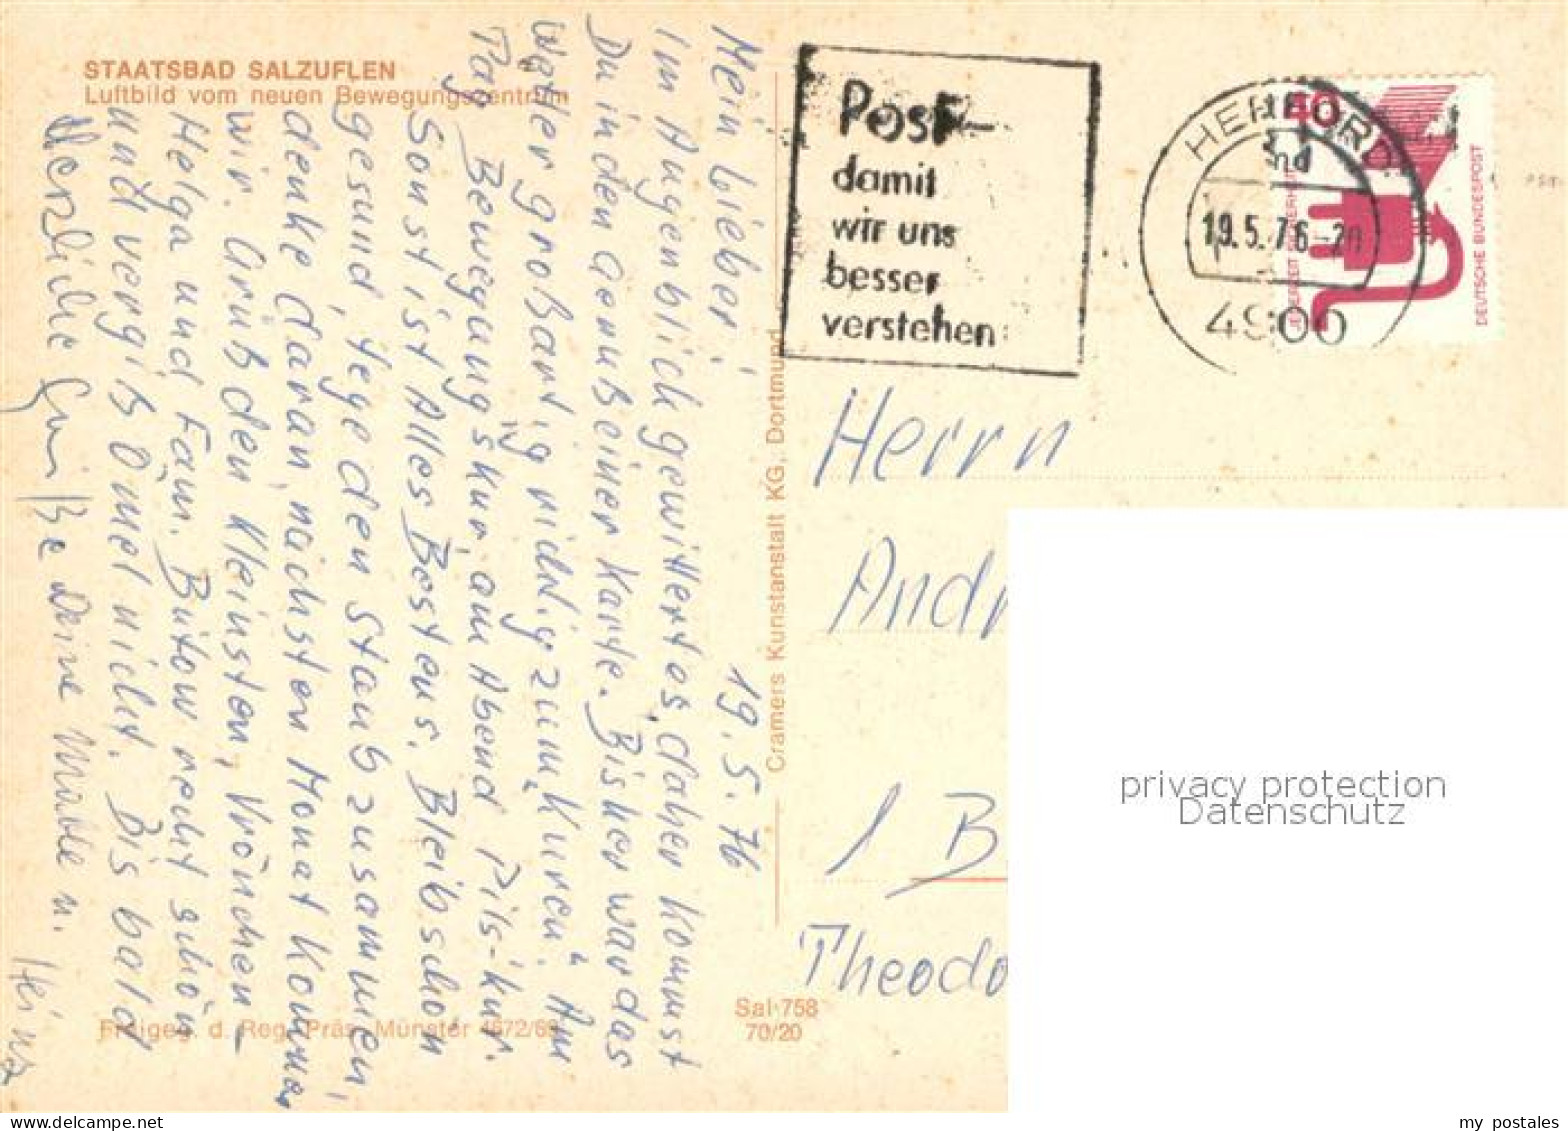 STAATSBAD SALZUFLEN
Luftbild vom neuen Bewegungszentrum
19.5.76
Mein Lieber,
Im Augenblick gewittert es, daher kommst
Du in den Genuß einer Karte. Bisher war das
Wetter großartig richtig zum "Kuren". Am
Tag Bewegungskur, am Abend Pils-kur.
Sonst ist Alles Bestens. Bleib schon
gesund, fege den Staub zusammen,
denke daran, nächsten Monat kommen
wir. Grüß den Kleinsten, Vrönchen
Helga und Fam. Bütow recht schön
und vergiß Omel nicht. Bis bald
Herzliche Grüße Deine Mutte u.
Heinz
Freigeg. d. Reg. Präs. Münster 4672/69
Cramers Kunstanstalt KG, Dortmund
Sal 758
70/20
Post-
damit
wir uns
besser
verstehen
HERFORD
19.5.76-20
4900
JEDERZEIT SICHERHEIT
DEUTSCHE BUNDESPOST
Herrn
Andr
1 B
Theodo
privacy protection
Datenschutz
my postales